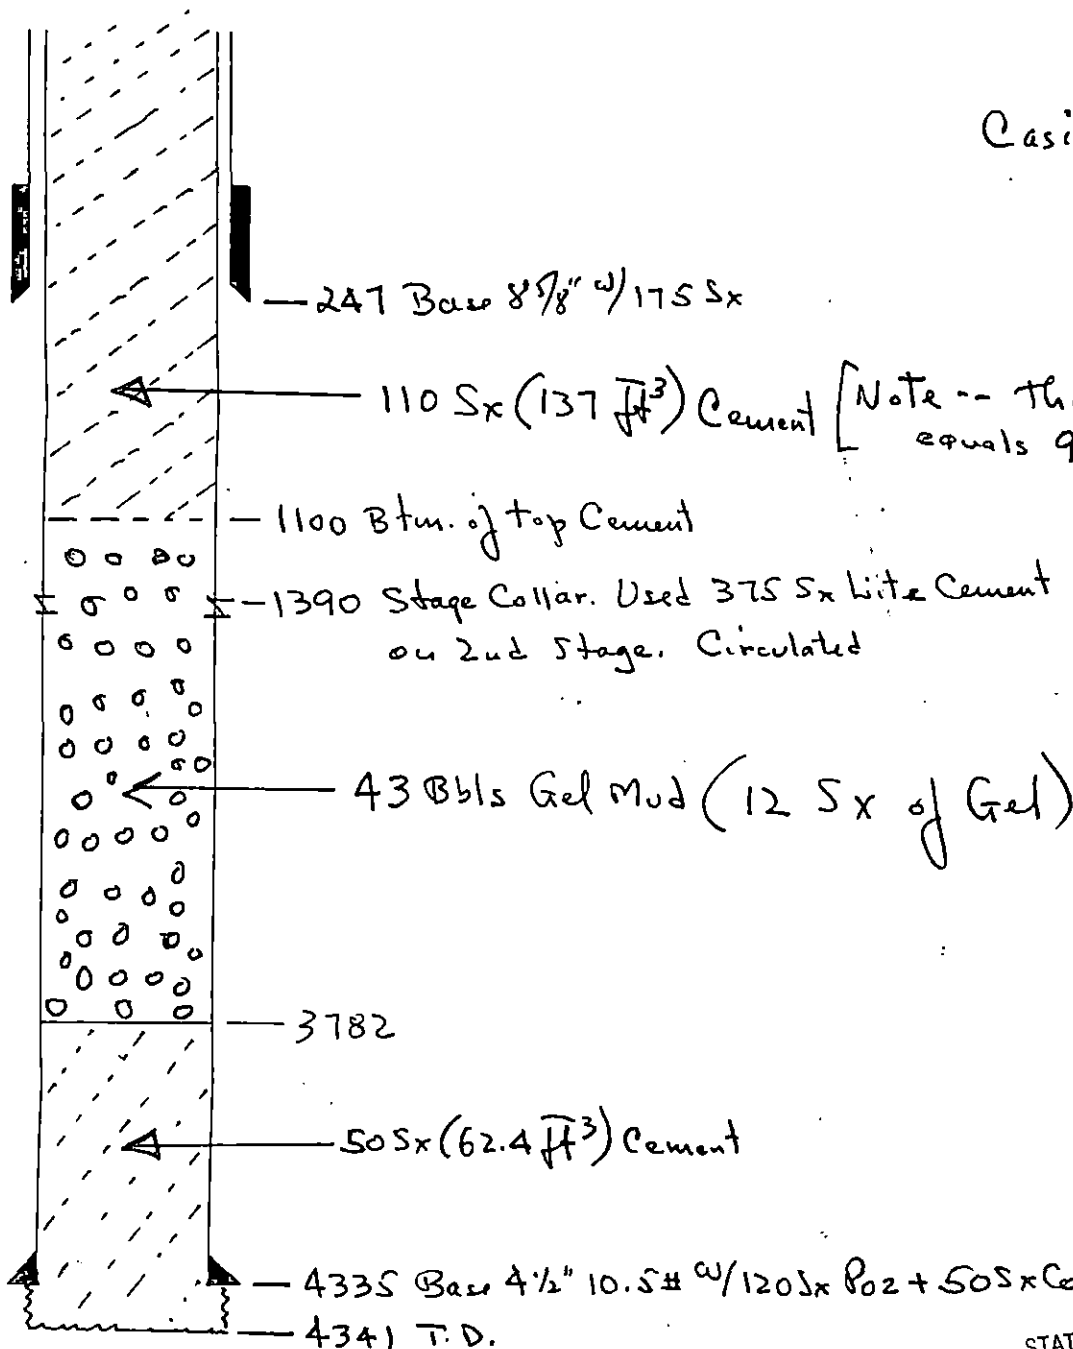 Casi
247 Base 8 5/8" w/ 175 Sx
110 Sx (137 ft³) Cement [Note -- Th
equals 9
1100 Btm. of top Cement
1390 Stage Collar. Used 375 Sx Lite Cement
on 2nd Stage. Circulated
43 Bbls Gel Mud (12 Sx of Gel)
3782
50 Sx (62.4 ft³) Cement
4335 Base 4 1/2" 10.5# w/ 120 Sx Poz + 50 Sx Ce
4341 T.D.
STAT